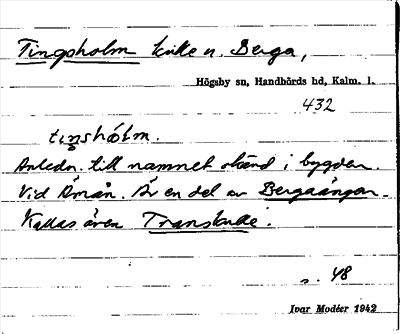 Tingsholm kulle n. Berga,
Högsby sn, Handbörds hd, Kalm. l.
432
tiŋshólm.
Anledn. till namnet okänd i bygden.
Vid Åmån. Är en del av Bergaängar.
Kallas även Transkulle.
s. 48
Ivar Modéer 1942